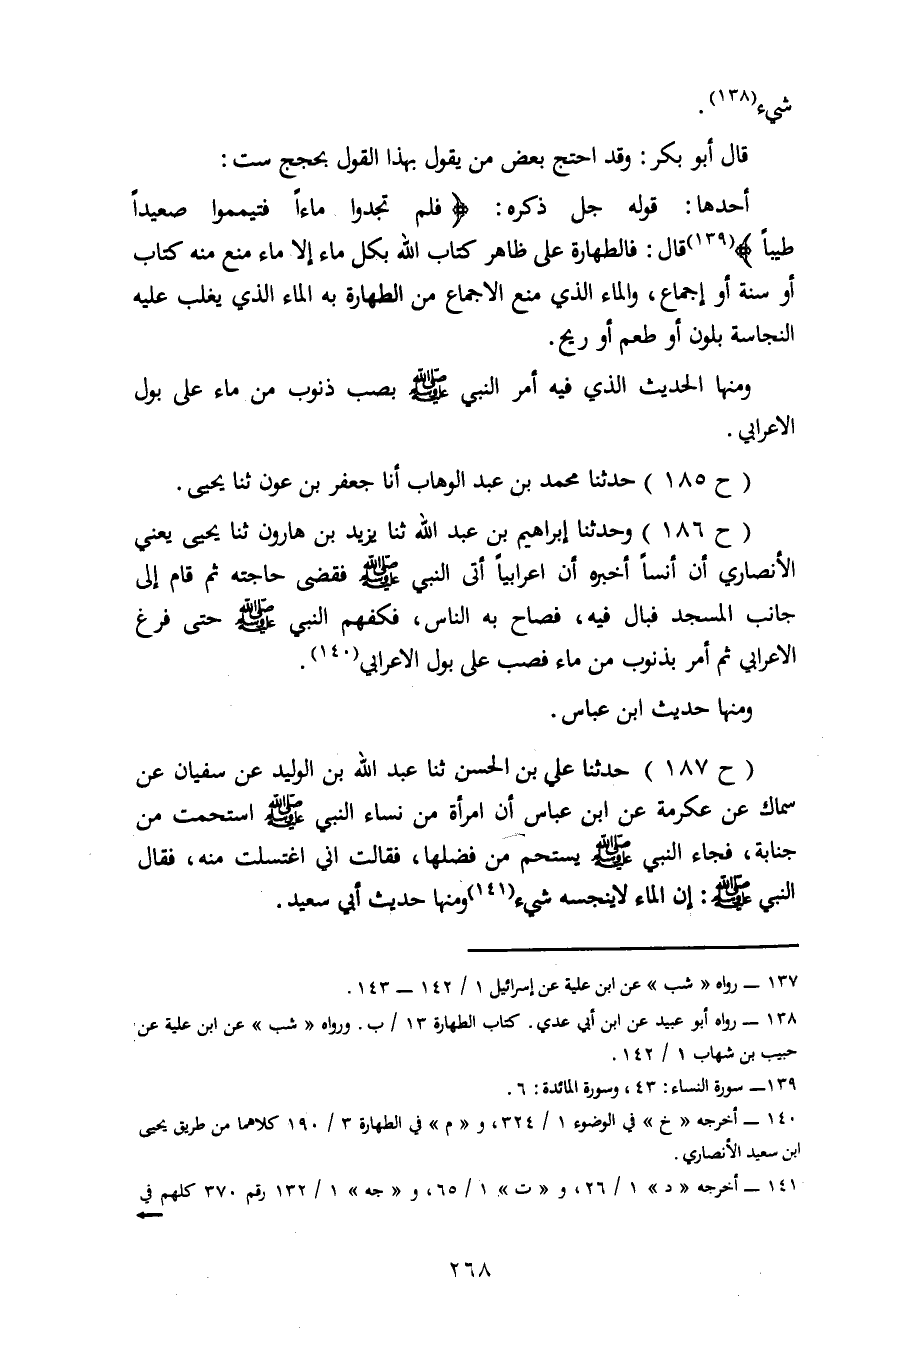 شيء(١٣٨).
قال أبو بكر: وقد احتج بعض من يقول بهذا القول بحجج ست:
أحدها: قوله جل ذكره: ﴿ فلم تجدوا ماءاً فتيمموا صعيداً
طيباً ﴾(١٣٩)قال: فالطهارة على ظاهر كتاب الله بكل ماء إلا ماء منع منه كتاب
أو سنة أو إجماع، والماء الذي منع الاجماع من الطهارة به الماء الذي يغلب عليه
النجاسة بلون أو طعم أو ريح.
ومنها الحديث الذي فيه أمر النبي ﷺ بصب ذنوب من ماء على بول
الاعرابي.
( ح ١٨٥ ) حدثنا محمد بن عبد الوهاب أنا جعفر بن عون ثنا يحيى.
( ح ١٨٦ ) وحدثنا إبراهيم بن عبد الله ثنا يزيد بن هارون ثنا يحيى يعني
الأنصاري أن أنساً أخبره أن اعرابياً أتى النبي ﷺ فقضى حاجته ثم قام إلى
جانب المسجد فبال فيه، فصاح به الناس، فكفهم النبي ﷺ حتى فرغ
الاعرابي ثم أمر بذنوب من ماء فصب على بول الاعرابي(١٤٠).
ومنها حديث ابن عباس.
( ح ١٨٧ ) حدثنا علي بن الحسن ثنا عبد الله بن الوليد عن سفيان عن
سماك عن عكرمة عن ابن عباس أن امرأة من نساء النبي ﷺ استحمت من
جنابة، فجاء النبي ﷺ يستحم من فضلها، فقالت اني اغتسلت منه، فقال
النبي ﷺ: إن الماء لاينجسه شيء(١٤١)ومنها حديث أبي سعيد.
١٣٧ — رواه « شب » عن ابن علية عن إسرائيل ١ / ١٤٢ — ١٤٣.
١٣٨ — رواه أبو عبيد عن ابن أبي عدي. كتاب الطهارة ١٣ / ب. ورواه « شب » عن ابن علية عن
حبيب بن شهاب ١ / ١٤٢.
١٣٩— سورة النساء: ٤٣، وسورة المائدة: ٦.
١٤٠ — أخرجه « خ » في الوضوء ١ / ٣٢٤، و « م » في الطهارة ٣ / ١٩٠ كلاهما من طريق يحيى
ابن سعيد الأنصاري.
١٤١ — أخرجه « د » ١ / ٢٦، و « ت » ١ / ٦٥، و « جه » ١ / ١٣٢ رقم ٣٧٠ كلهم في
٢٦٨